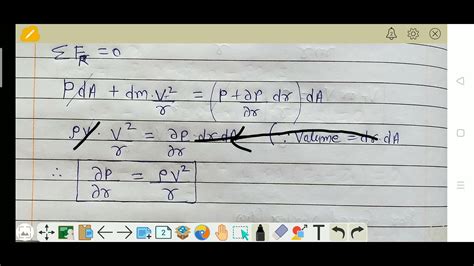 ΣF_R = 0
PdA + dm · V²/r = (P + ∂P/∂r dr) · dA
ρV · V²/r = ∂P/∂r · dr dA (∵ Volume = dr · dA
∴ ∂P/∂r = ρV²/r